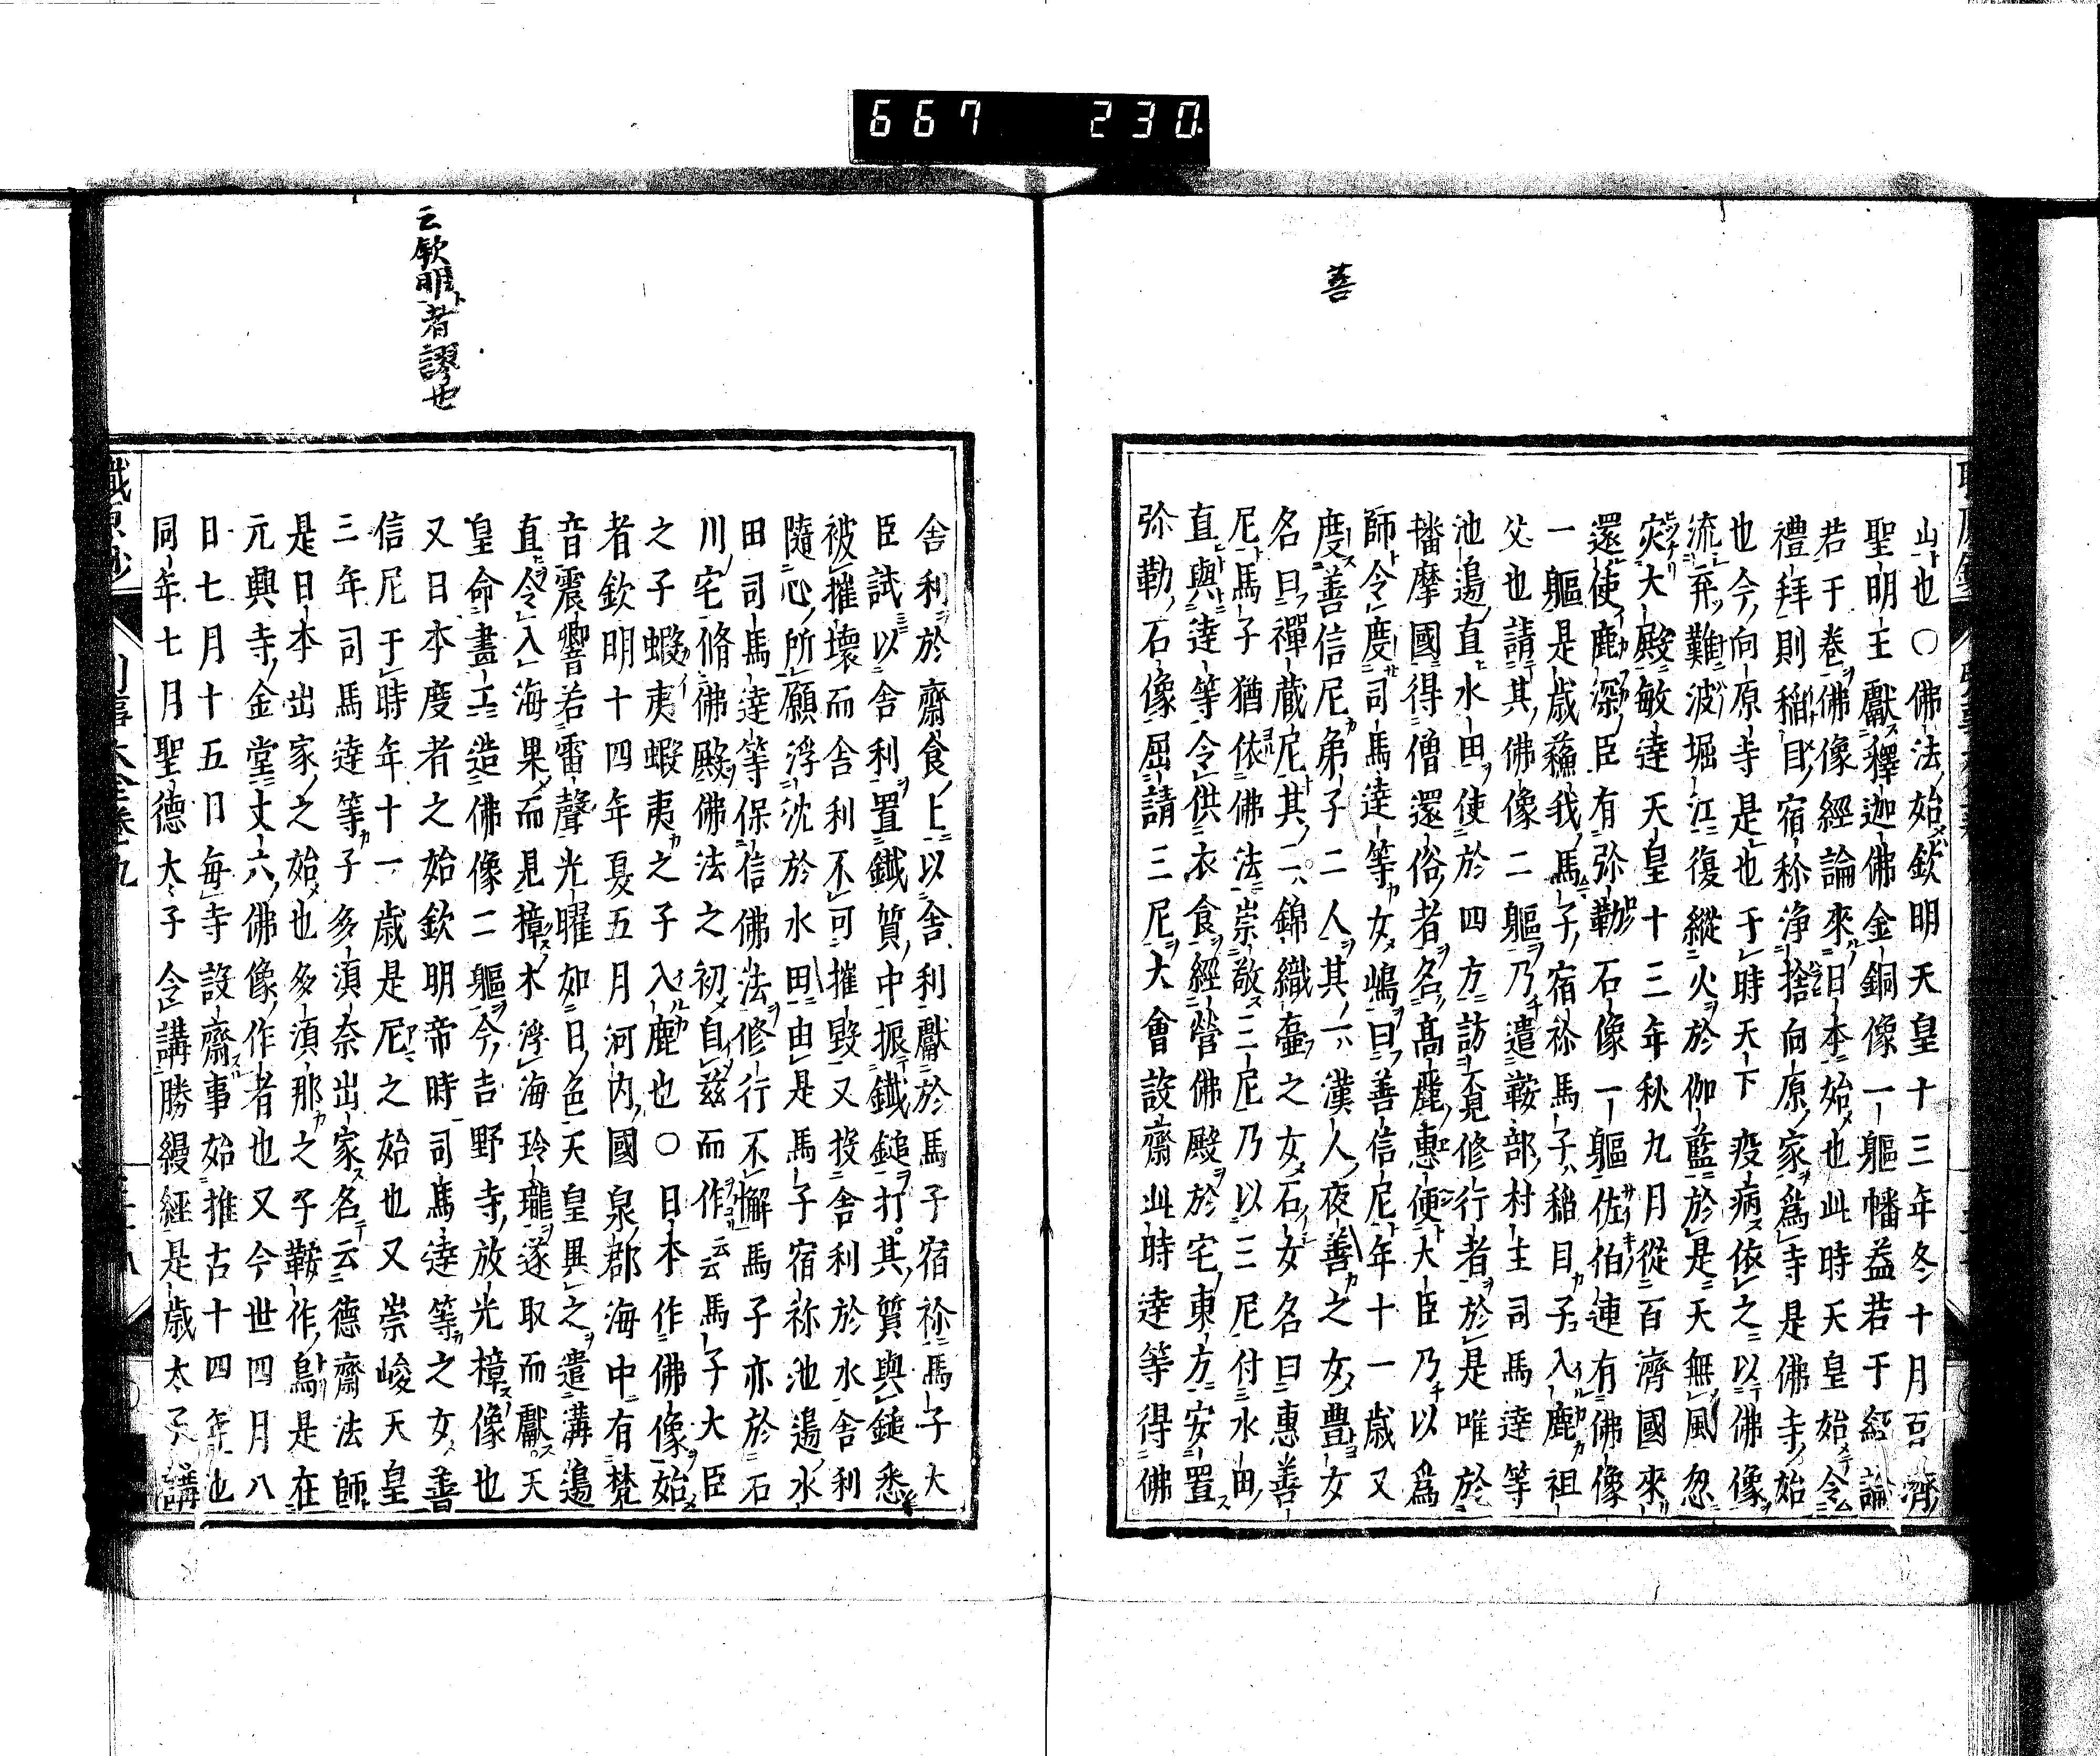 667 230
善
山也〇佛法始欽明天皇十三年冬十月百濟
聖明王獻釋迦佛金銅像一軀幡蓋若于經論
若于卷佛像經論來日本始也此時天皇始令
禮拜則稲目宿祢浄捨向原家爲寺是佛寺始
也今向原寺是也于時天下疫病依之以佛像
流弃難波堀江復縱火於伽藍於是天無風忽
灾大殿敏達天皇十三年秋九月從百濟國來
還使鹿深臣有弥勒石像一軀佐伯連有佛像
一軀是歳蘓我馬子宿祢馬子稲目子入鹿祖
父也請其佛像二軀乃遣鞍部村主司馬達等
池邉直水田使於四方訪覓修行者於是唯於
播摩國得僧還俗者名高麗惠便大臣乃以爲
師令度司馬達等女嶋曰善信尼年十一歳又
度善信尼弟子二人其一漢人夜善之女豊女
名曰禪蔵尼其二錦織壷之女石女名曰惠善
尼馬子猶依佛法崇敬三尼乃以三尼付水田
直與達等令供衣食經營佛殿於宅東方安置
弥勒石像屈請三尼大會設齋此時達等得佛
云欽明者謬也
舎利於齋食上以舎利獻於馬子宿祢馬子大
臣試以舎利置鐡質中振鐡鎚打其質與鎚悉
被摧壞而舎利不可摧毀又投舎利於水舎利
隨心所願浮沈於水田由是馬子宿祢池邉水
田司馬達等保信佛法修行不懈馬子亦於石
川宅脩佛殿佛法之初自茲而作云云馬子大臣
之子蝦夷蝦夷之子入鹿也〇日本作佛像始
者欽明十四年夏五月河内國泉郡海中有梵
音震響若雷聲光曜如日色天皇異之遣溝邉
直令入海果而見樟木浮海玲瓏遂取而獻天
皇命畫工造佛像二軀今吉野寺放光樟像也
又日本度者之始欽明帝時司馬達等之女善
信尼于時年十一歳是尼之始也又崇峻天皇
三年司馬達等子多湏奈出家名云德齋法師
是日本出家之始也多湏那之子鞍作鳥是在
元興寺金堂丈六佛像作者也又今世四月八
日七月十五日毎寺設齋事始推古十四年也
同年七月聖德大子令講勝縵經是歳太子講